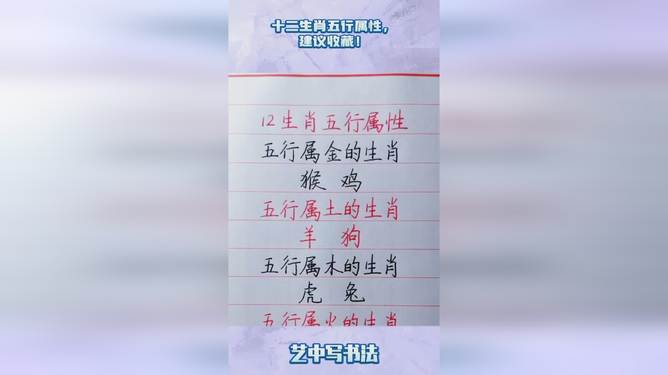 十二生肖五行属性，
建议收藏！
12生肖五行属性
五行属金的生肖
猴 鸡
五行属土的生肖
羊 狗
五行属木的生肖
虎 兔
五行属火的生肖
艺中写书法